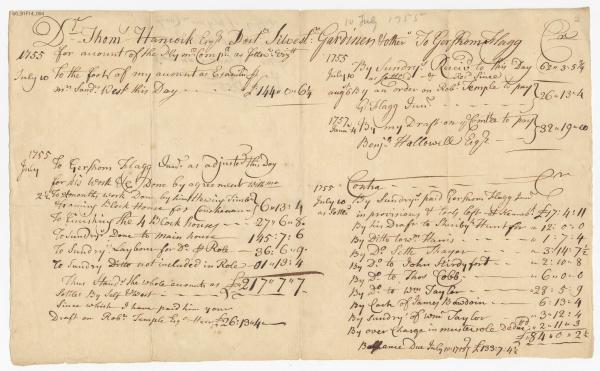 10 July 1755
Dr. Thoms. Hancock Esqr. Doctr. Silvestr. Gardiner & others To Gershom Flagg Cr
for account of the Plymo. Compa. as follows
1755
July 10 To the foot of my account as Examin'd
Mr. Saml. West this Day - - - £144"0"6½
1755
July 10 By Sundrys Receiv'd to this Day 62"3"5¾
as settled
augt 6 By an order on Robt. Temple to pay
Gm. Flagg Junr. - - 26"13"4
1757
Janu. 4 By my Draft on ye Comtee to pay
Benjn. Hallowell Esqr. 32"19"
1755
July To Gershom Flagg Junr. as adjusted this Day
for his work &c Done by agreement with me
To months work Done by him Hewing Timber
Framing Block House for Cushenac 6"13"4
To Finishing the 4 Barack Houses - 27"6"8
To Sundrys Done to main house - 145"7"6
To Sundry Labour for Do. Role - 36"6"9
To Sundry Ditto not included in Role - 01"13"4
Thus Stands the whole amount as £217"7"7
Settled By Self & West
Since which I have paid him your
Draft on Robt. Temple Esq. £26:13"4
1755 Contra Cr
July 10 By Sundrys paid Gershom Flagg Junr.
as settled in provisions & tools left £17"4"11
By his Draft to Shirley Hunt for - 12"0"0
By Ditto Wm. Haris - 1"7"4
By Do. Seth Thayer - 3"14"7½
By Do. to John - 2"10"8
By Do. to Thos. Cobb - 6"0"0
By Do. to Wm. Taylor - 28"5"9
By Cash of James Bowdoin - 6"13"4
By Sundry of Wm. Taylor - 3"12"4
By over Charge in muster role Ded. 2"11"3
£84"0"2½
Ballance Due July 10 1755 £133"7"4½